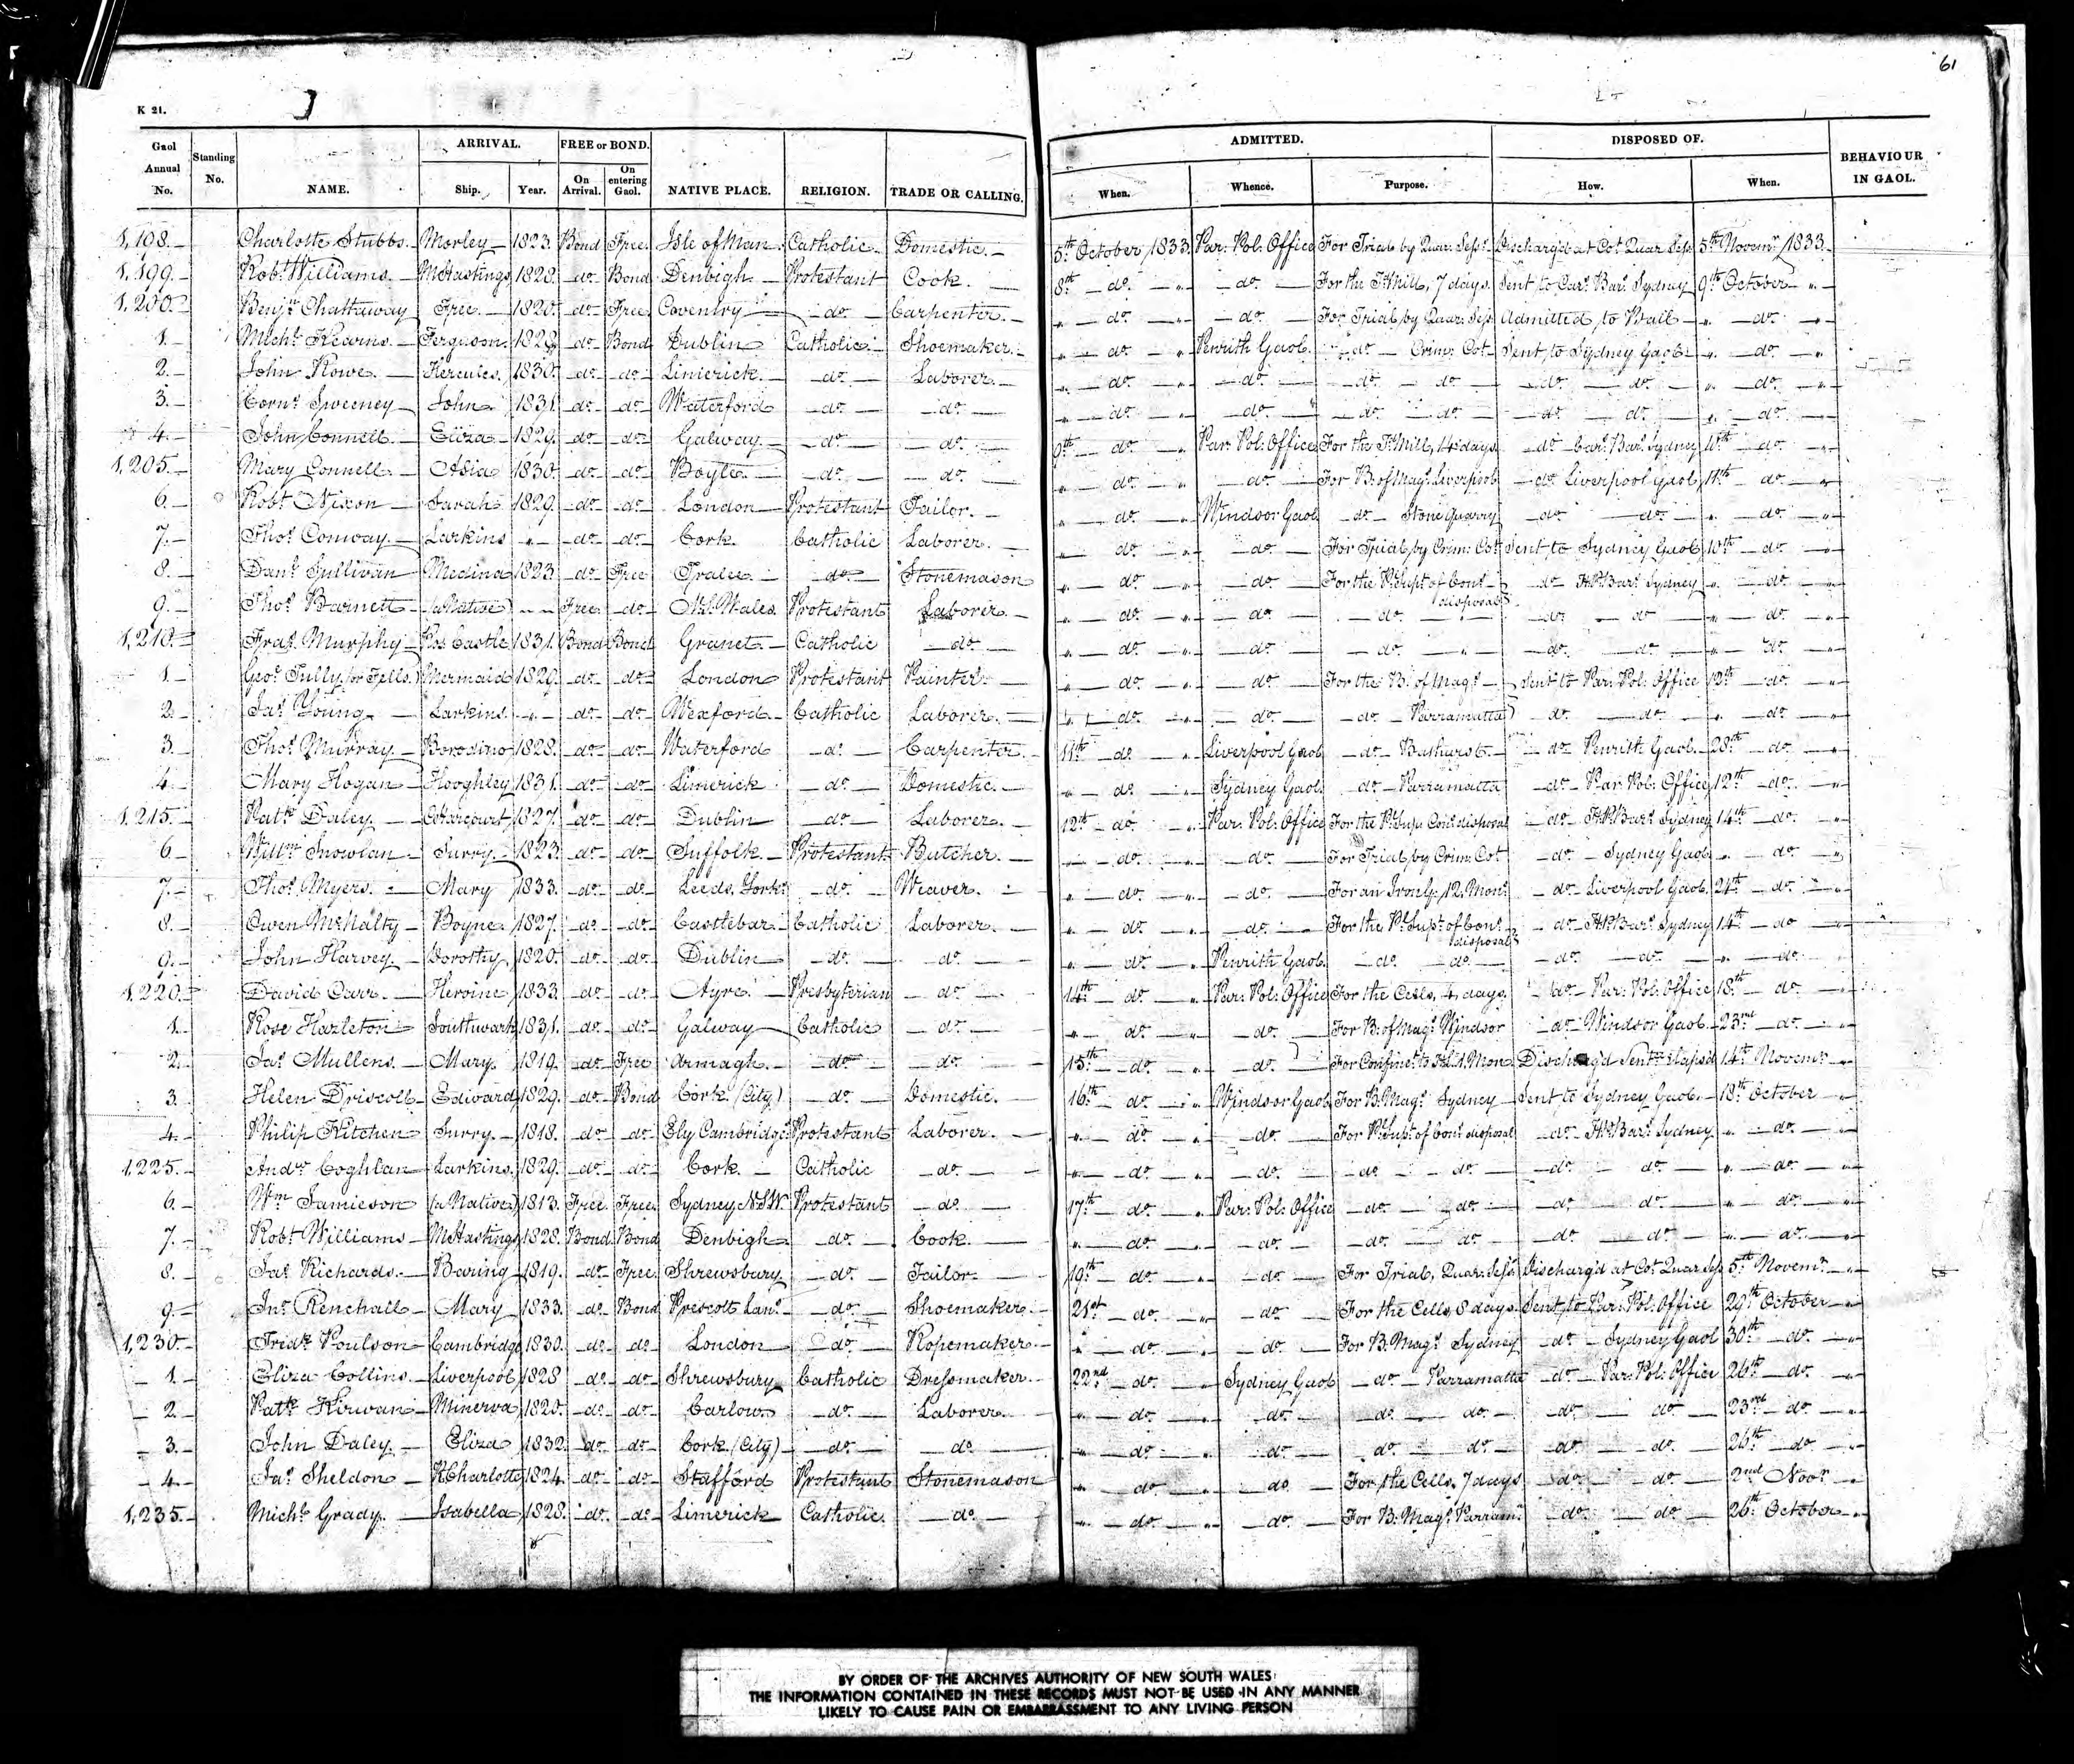 61
K 21.
Gaol Annual No. | Standing No. | NAME. | ARRIVAL. Ship. | Year. | FREE or BOND. On Arrival. | On entering Gaol. | NATIVE PLACE. | RELIGION. | TRADE OR CALLING. | ADMITTED. When. | Whence. | Purpose. | DISPOSED OF. How. | When. | BEHAVIOUR IN GAOL.
1,198. Charlotte Stubbs. Morley 1823 Bond Free Isle of Man Catholic Domestic. 5th October 1833 Par: Pol: Office For Trial by Quar: Sess: Discharg'd at Cot Quar Sess 5th Novemr 1833
1,199. Robt Williams. Ms Hastings 1828. do Bond Denbigh Protestant Cook. 8th do " do For the T. Mill, 7 days. Sent to Cars Bars Sydney 9th October "
1,200. Benjn Chattaway Free. 1820. do Free Coventry do Carpenter. " do " do For Trial by Quar: Sess Admitted to Bail " do "
1. Michl Kearns. Ferguson 1829 do Bond Dublin Catholic Shoemaker. " do " Penrith Gaol do Crim: Cot Sent to Sydney Gaol " do "
2. John Rowe. Hercules. 1830. do do Limerick. do Laborer. " do " do do do do do " do "
3. Corns Sweeney John. 1831. do do Waterford do do " do " do do do do do " do "
4. John Connell. Eliza 1829. do do Galway do do 9th do " Par: Pol: Office For the T. Mill, 14 days do Cars Bars Sydney 11th do "
1,205. Mary Connell. Asia 1830. do do Boyle. do do " do " do For B: of Mags Liverpool do Liverpool Gaol 11th do "
6. Robt Nixon Sarah 1829. do do London Protestant Tailor. " do " Windsor Gaol do Stone Quarry do do " do "
7. Thos Conway Larkins " do do Cork. Catholic Laborer. " do " do For Trial by Crim: Cot Sent to Sydney Gaol 10th do "
8. Danl Sullivan Medina 1823 do Free Tralee. do Stonemason " do " do For the Pl Supt of Cons disposal do H.P. Bars Sydney " do "
9. Thos Barnett (a Native) Free do N.S. Wales Protestant Laborer. " do " do do do do " do "
1,210. Fras Murphy Jas Castle 1831. Bond Bond Granet. Catholic do " do " do do " do do " do "
1. Geo. Tully, or Fells. Mermaid 1829. do do London Protestant Painter. " do " do For the B: of Mags Sent to Par: Pol: Office 12th do "
2. Jas Young Larkins. " do do Wexford. Catholic Laborer. " do " do do Parramatta do do " do "
3. Thos Murray Borodino 1828. do do Waterford do Carpenter 11th do " Liverpool Gaol do Bathurst do Penrith Gaol. 28th do "
4. Mary Hogan Hooghley 1831. do do Limerick do Domestic. " do " Sydney Gaol do Parramatta do Par Pol: Office 12th do "
1,215. Patk Daley Cs Harcourt 1827. do do Dublin do Laborer. 12th do " Par: Pol: Office For the Pl Supt Cons disposal do H.P. Bars Sydney 14th do "
6. Willm Snowlan Surry. 1823. do do Suffolk. Protestant Butcher. " do " do For Trial by Crim: Cot do Sydney Gaol " do "
7. Thos Myers. Mary 1833. do do Leeds, York: do Weaver. " do " do For an Iron G: 12 Mons do Liverpool Gaol 21st do "
8. Owen McNalty Boyne 1827. do do Castlebar. Catholic Laborer. " do " do For the Pl Supt of Cons disposal do H.P. Bars Sydney 14th do "
9. John Harvey. Dorothy 1820. do do Dublin do do " do " Penrith Gaol do do do do " do "
1,220. David Carr. Heroine 1833. do do Ayre. Presbyterian do 14th do " Par: Pol: Office For the Cells, 4 days. do Par: Pol: Office 18th do "
1. Rose Hazleton Southwark 1831. do do Galway Catholic do " do " do For B: of Mags Windsor do Windsor Gaol 23rd do "
2. Jas Mullens. Mary. 1819. do Free Armagh. do do 15th do " do For Confinet to H.L. 1 Mon Discharg'd Sentce elapsd 14th Novemr "
3. Helen Driscoll Edward 1829. do Bond Cork (City) do Domestic. 16th do " Windsor Gaol For B: Mags Sydney Sent to Sydney Gaol. 18th October "
4. Philip Kitchen Surry. 1818. do do Ely Cambridge Protestant Laborer. " do " do For Pl Supt of Cons disposal do H.P. Bars Sydney " do "
1225. Andw Coghlan Larkins. 1829. do do Cork. Catholic do " do " do do do do do " do "
6. Wm Jamieson (a Native) 1813. Free Free Sydney, N.S.W. Protestant do 17th do " Par: Pol: Office do do do do " do "
7. Robt Williams Ms Hastings 1828. Bond Bond Denbigh do Cook. " do " do do do do do " do "
8. Jas Richards. Baring 1819. do Free Shrewsbury do Tailor 19th do " do For Trial, Quar: Sess: Discharg'd at Cot Quar Ses 5th Novemr "
9. Jno Renchall Mary 1833. do Bond Prescott Lanc do Shoemaker. 21st do " do For the Cells, 8 days. Sent to Par: Pol: Office 29th October "
1,230. Fredk Poulson Cambridge 1830. do do London do Ropemaker. " do " do For B: Mags Sydney do Sydney Gaol 30th do "
1. Eliza Collins. Liverpool 1828 do do Shrewsbury Catholic Dressmaker. 22nd do " Sydney Gaol do Parramatta do Par: Pol: Office 26th do "
2. Patk Kirwan Minerva 1820. do do Carlow do Laborer. " do " do do do do do 23rd do "
3. John Daley. Eliza 1832. do do Cork (City) do do " do " do do do do do 26th do "
4. Jas Sheldon P. Charlotte 1824. do do Stafford Protestant Stonemason " do " do For the Cells, 7 days do do 2nd Novr "
1,235. Michl Grady. Isabella 1828. do do Limerick Catholic. do " do " do For B: Mags Parram: do do 26th October "
BY ORDER OF THE ARCHIVES AUTHORITY OF NEW SOUTH WALES
THE INFORMATION CONTAINED IN THESE RECORDS MUST NOT BE USED IN ANY MANNER
LIKELY TO CAUSE PAIN OR EMBARRASSMENT TO ANY LIVING PERSON